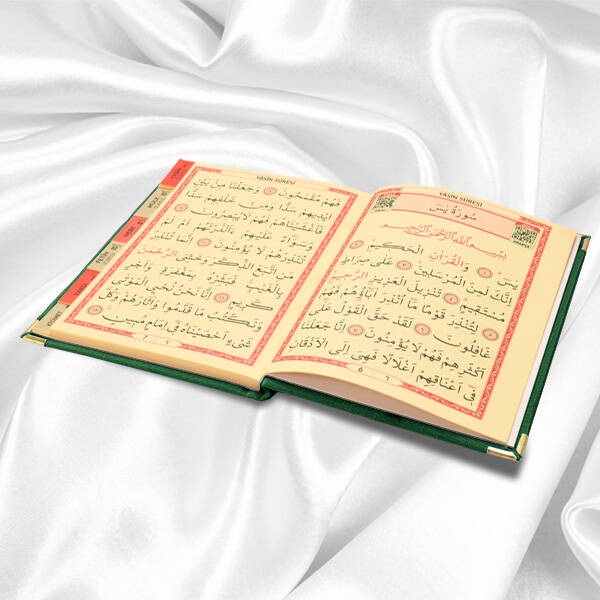 YÂSİN SÛRESİ
سُورَةُ يٰسٓ
بِسْمِ اللّٰهِ الرَّحْمٰنِ الرَّحِيمِ
يٰسٓ ﴿١﴾ وَالْقُرْاٰنِ الْحَكِيمِ ﴿٢﴾
اِنَّكَ لَمِنَ الْمُرْسَلِينَ ﴿٣﴾ عَلٰى صِرَاطٍ
مُسْتَقِيمٍ ﴿٤﴾ تَنْزِيلَ الْعَزِيزِ الرَّحِيمِ ﴿٥﴾
لِتُنْذِرَ قَوْمًا مَٓا اُنْذِرَ اٰبَٓاؤُ۬هُمْ فَهُمْ
غَافِلُونَ ﴿٦﴾ لَقَدْ حَقَّ الْقَوْلُ عَلٰٓى
اَكْثَرِهِمْ فَهُمْ لَا يُؤْمِنُونَ ﴿٧﴾ اِنَّا جَعَلْنَا
فِٓي اَعْنَاقِهِمْ اَغْلَالًا فَهِيَ اِلَى الْاَذْقَانِ
6 ٦
YÂSİN SÛRESİ
فَهُمْ مُقْمَحُونَ ﴿٨﴾ وَجَعَلْنَا مِنْ بَيْنِ
اَيْدِيهِمْ سَدًّا وَمِنْ خَلْفِهِمْ سَدًّا
فَاَغْشَيْنَاهُمْ فَهُمْ لَا يُبْصِرُونَ ﴿٩﴾
وَسَوَٓاءٌ عَلَيْهِمْ ءَاَنْذَرْتَهُمْ اَمْ لَمْ
تُنْذِرْهُمْ لَا يُؤْمِنُونَ ﴿١٠﴾ اِنَّمَا تُنْذِرُ
مَنِ اتَّبَعَ الذِّكْرَ وَخَشِيَ الرَّحْمٰنَ
بِالْغَيْبِ فَبَشِّرْهُ بِمَغْفِرَةٍ وَاَجْرٍ
كَرِيمٍ ﴿١١﴾ اِنَّا نَحْنُ نُحْيِ الْمَوْتٰى
وَنَكْتُبُ مَا قَدَّمُوا وَاٰثَارَهُمْ وَكُلَّ
شَيْءٍ اَحْصَيْنَاهُ فِٓي اِمَامٍ مُبِينٍ ﴿١٢﴾
7 ٧